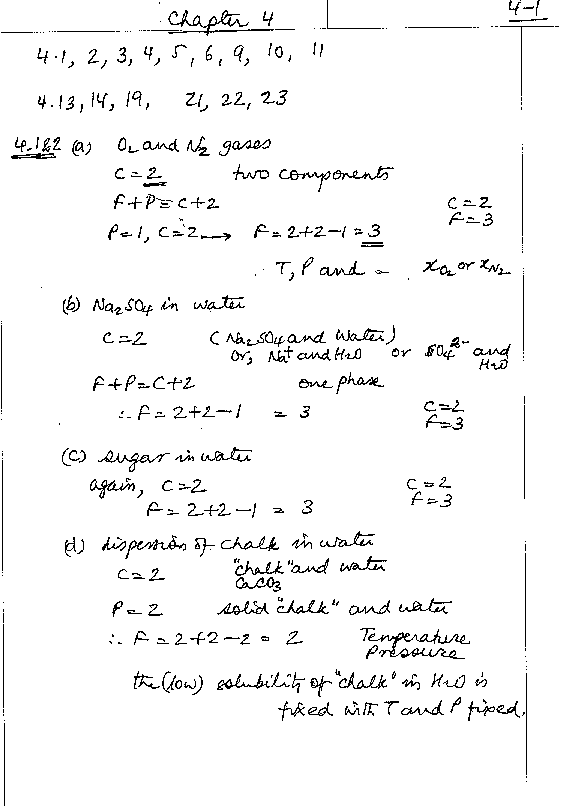 Chapter 4
4-1
4.1, 2, 3, 4, 5, 6, 9, 10, 11
4.13, 14, 19, 21, 22, 23
4.1&2 (a) O₂ and N₂ gases
C = 2 two components
F+P = C+2 C = 2
F = 3
P=1, C=2 → F = 2+2-1 = 3
T, P and = xO₂ or xN₂
(b) Na₂SO₄ in water
C = 2 (Na₂SO₄ and Water)
or, Na⁺ and H₂O or SO₄²⁻ and
H₂O
F+P=C+2 one phase
∴ F = 2+2-1 = 3 C=2
F=3
(c) sugar in water
again, C=2 C = 2
F = 2+2-1 = 3 F = 3
(d) dispersion of chalk in water
C=2 "chalk" and water
CaCO₃
P = 2 solid "chalk" and water
∴ F = 2+2-2 = 2 Temperature
Pressure
the (low) solubility of "chalk" in H₂O is
fixed with T and P fixed.